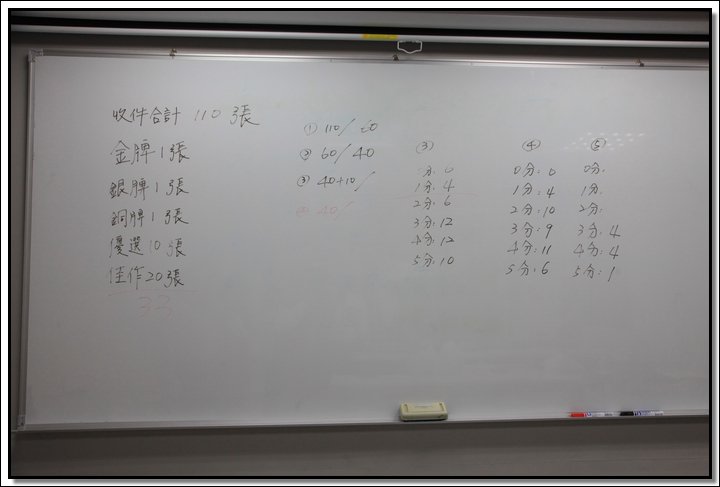 收件合計 110 張
金牌 1 張
銀牌 1 張
銅牌 1 張
優選 10 張
佳作 20 張
33
① 110 / 60
② 60 / 40
③ 40+10 /
④ 40 /
③
分: 0
1分: 4
2分: 6
3分: 12
4分: 12
5分: 10
④
0分: 0
1分: 4
2分: 10
3分: 9
4分: 11
5分: 6
⑤
0分:
1分:
2分:
3分: 4
4分: 4
5分: 1